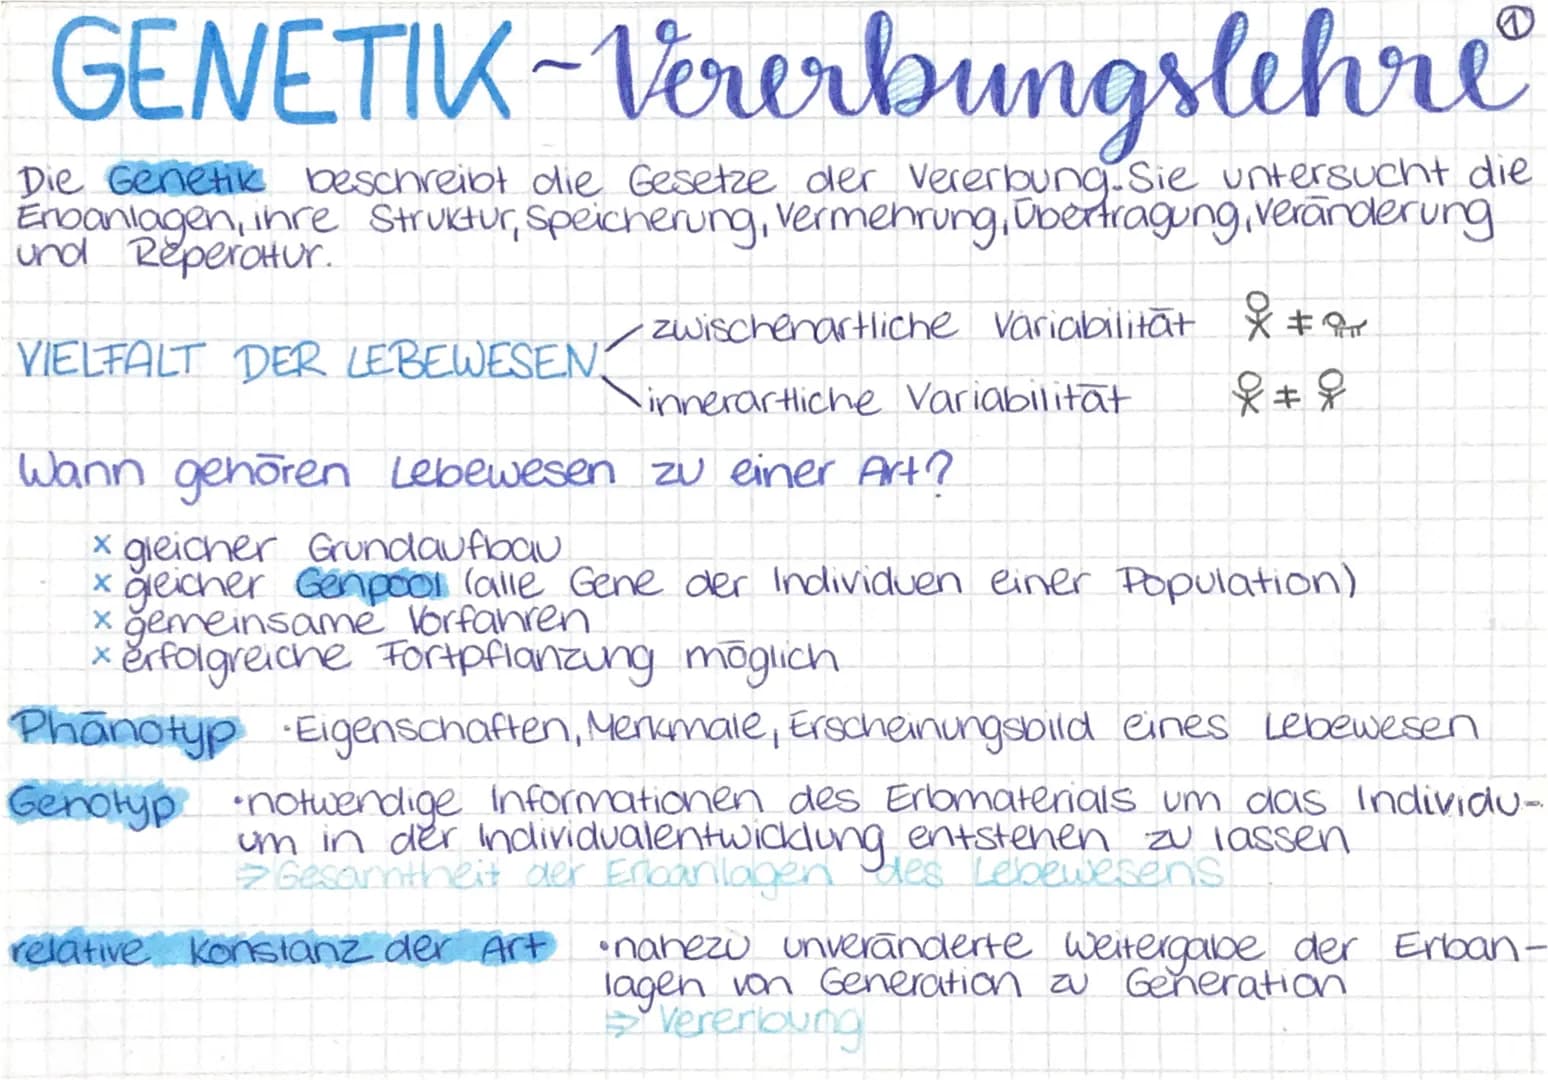 GENETIK - Vererbungslehre ①
Die Genetik beschreibt die Gesetze der Vererbung. Sie untersucht die
Erbanlagen, ihre Struktur, Speicherung, Vermehrung, Übertragung, Veränderung
und Reperatur.
VIELFALT DER LEBEWESEN
zwischenartliche Variabilität ≠
innerartliche Variabilität ≠
Wann gehören Lebewesen zu einer Art?
x gleicher Grundaufbau
x gleicher Genpool (alle Gene der Individuen einer Population)
x gemeinsame Vorfahren
x erfolgreiche Fortpflanzung möglich
Phänotyp •Eigenschaften, Merkmale, Erscheinungsbild eines Lebewesen
Genotyp •notwendige Informationen des Erbmaterials um das Individu-
um in der Individualentwicklung entstehen zu lassen
⇒ Gesamtheit der Erbanlagen des Lebewesens
relative Konstanz der Art •nahezu unveränderte Weitergabe der Erban-
lagen von Generation zu Generation
⇒ Vererbung